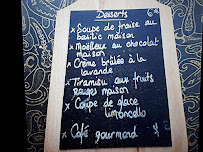 Desserts 6€
x Soupe de fraise au
basilic maison
x Moelleux au chocolat
maison
x Crème brûlée à la
lavande
x Tiramisu aux fruits
rouges maison
x Coupe de glace
limoncello
x Café gourmand